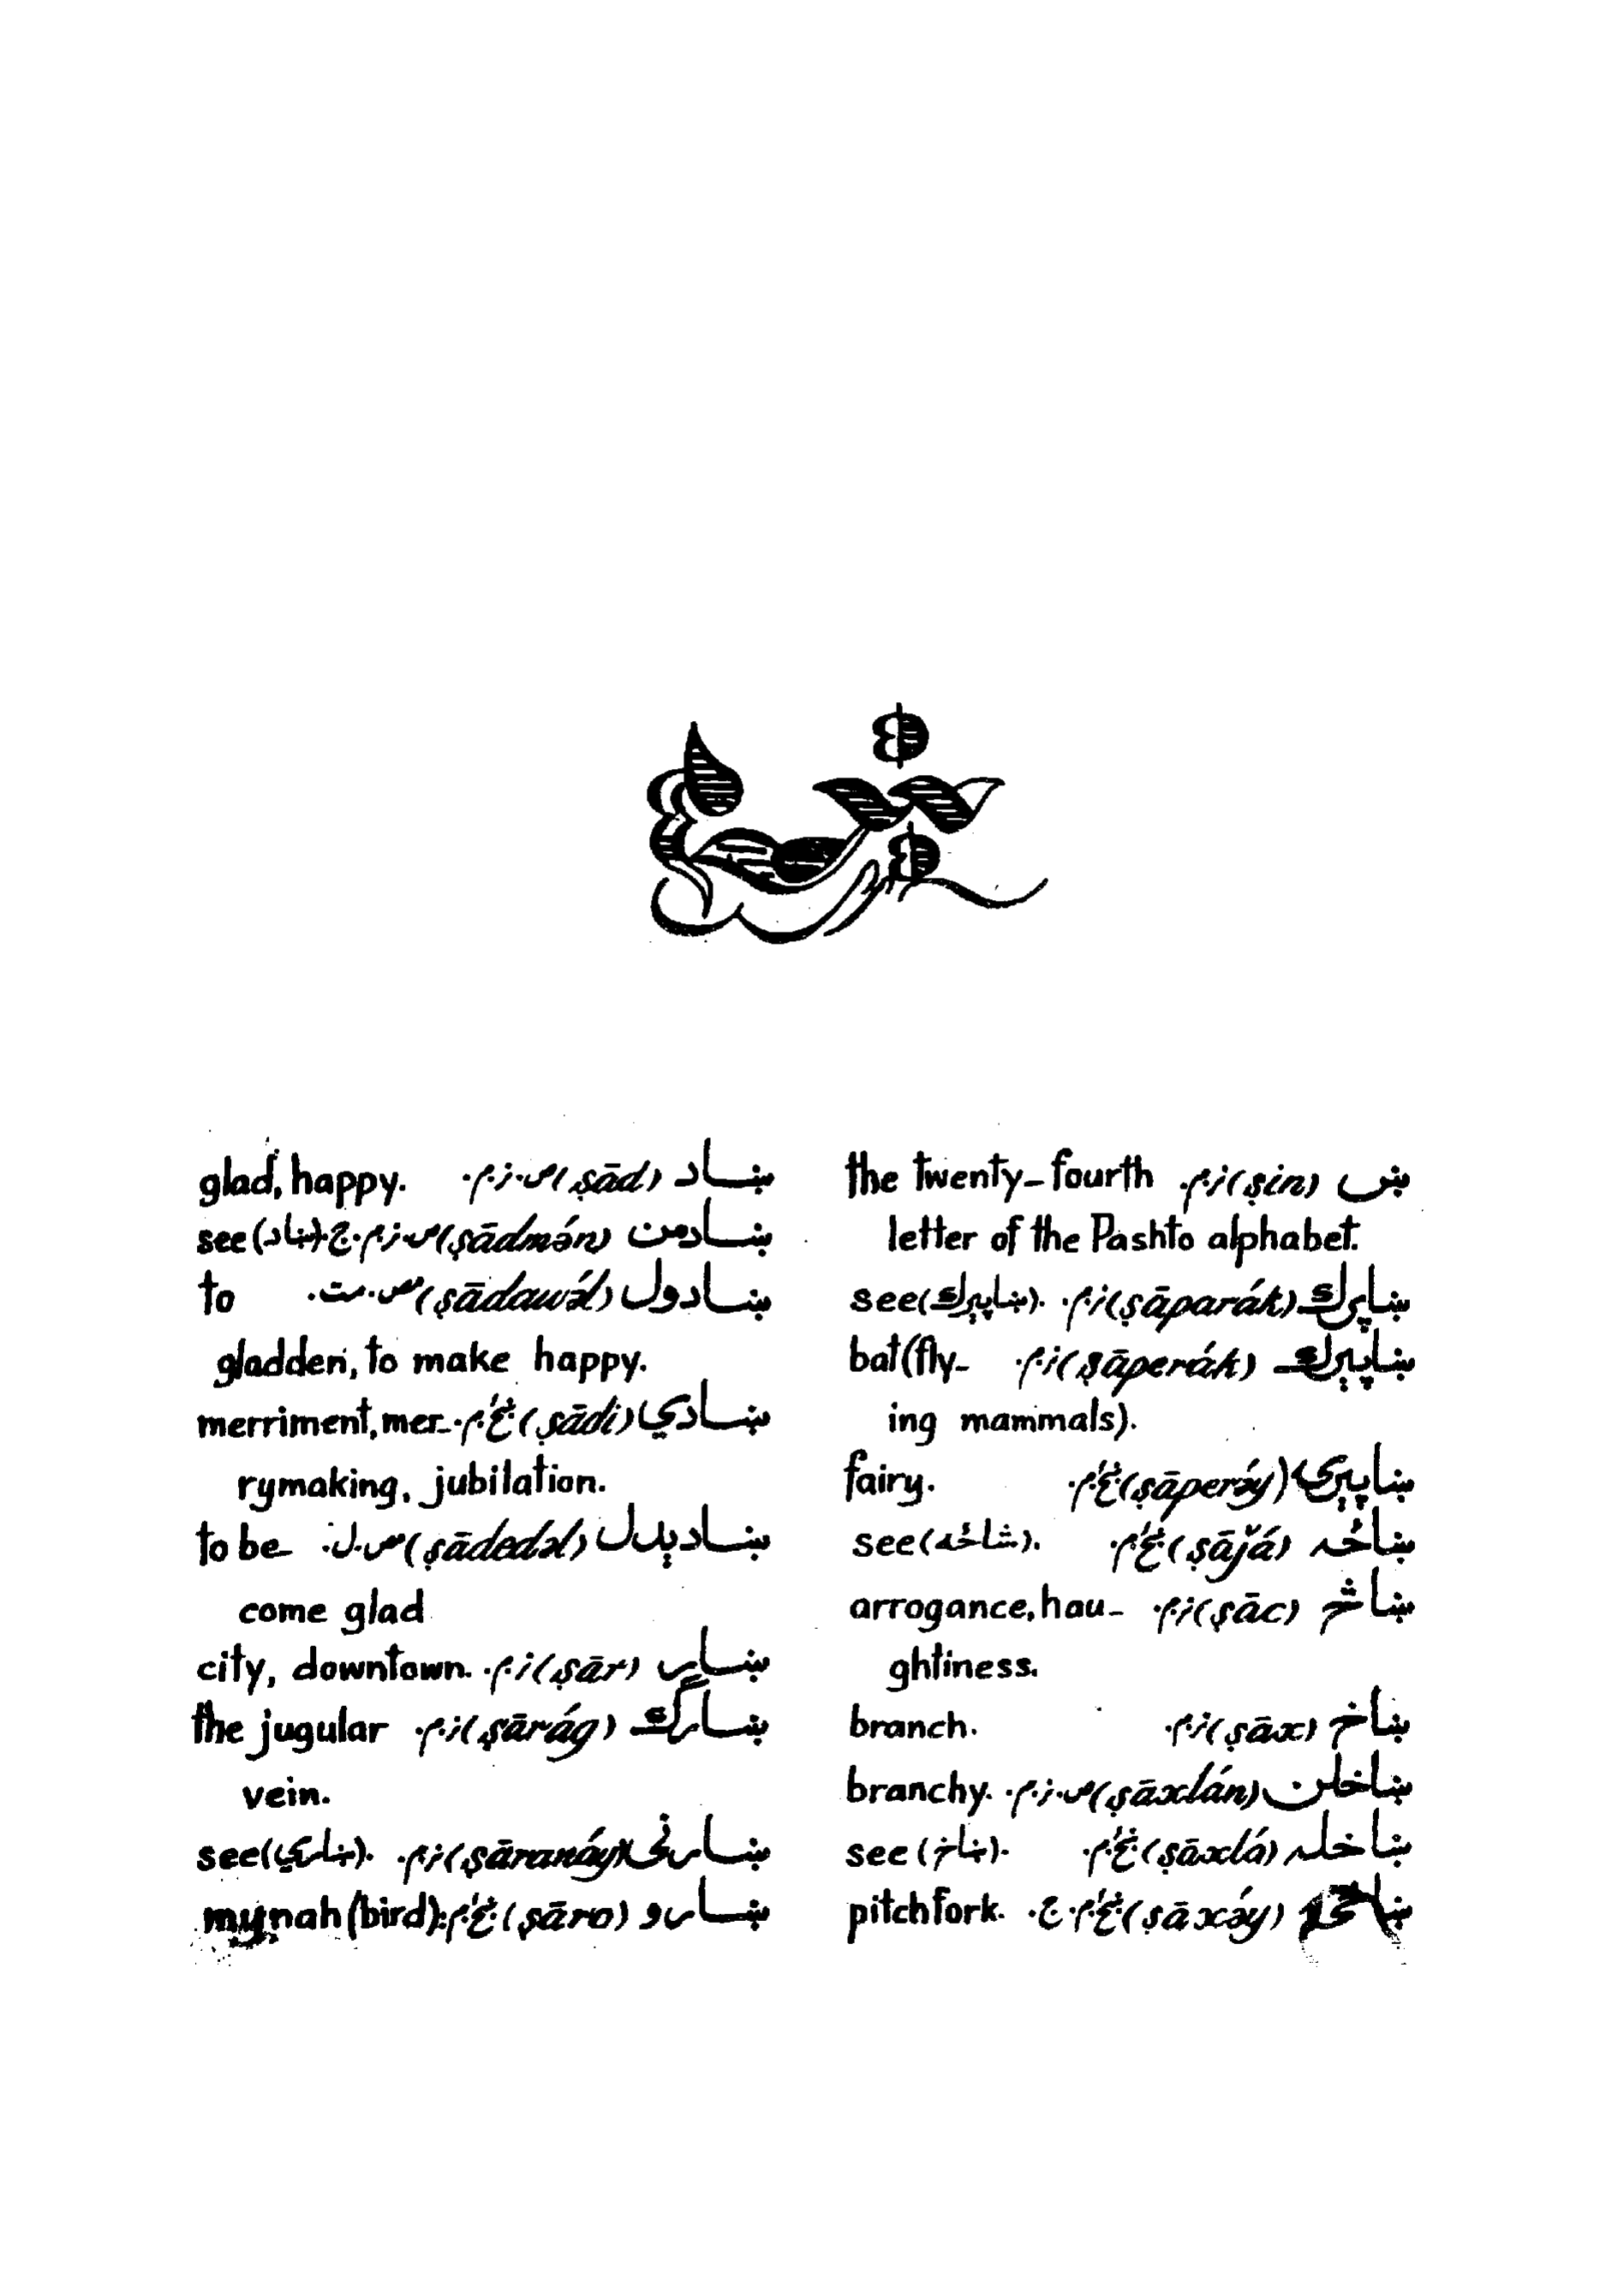 ښ
ښين (şin) ن.م. the twenty-fourth
letter of the Pashto alphabet.
ښاپرک (şāparák) ن.م. see (ښاپېرک).
ښاپېرک (şāperák) ن.م. bat (fly-
ing mammals).
ښاپېرۍ (şāperə́y) ن.م. fairy.
ښاځه (şāǰá) see (شاځه).
ښاڅ (şāc) ن.م. arrogance, hau-
ghtiness.
ښاخ (şāx) ن.م. branch.
ښاخلن (şāxlán) ص.ن.م. branchy.
ښاخله (şāxlá) see (ښاخ).
(şāxə́y) pitchfork.
ښاد (şād) ص.ن.م. glad, happy.
ښادمن (şādmə́n) ص.ن.م.ج. see (ښاد)
ښادول (şādawə́l) ص.مت. to
gladden, to make happy.
ښادي (şādi) merriment, mer-
rymaking, jubilation.
ښادېدل (şādedə́l) ص.ل. to be-
come glad
ښار (şār) ن.م. city, downtown.
ښارګ (şārág) ن.م. the jugular
vein.
ښارنی (şāranáy) ن.م. see (ښاري).
ښارو (şāro) mynah (bird).